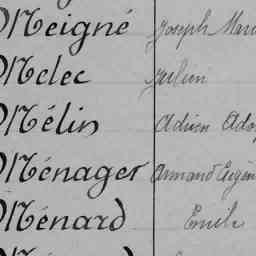 Meigné Joseph
Melec Julien
Mélin Adrien
Ménager Armand Eugène
Ménard Emile